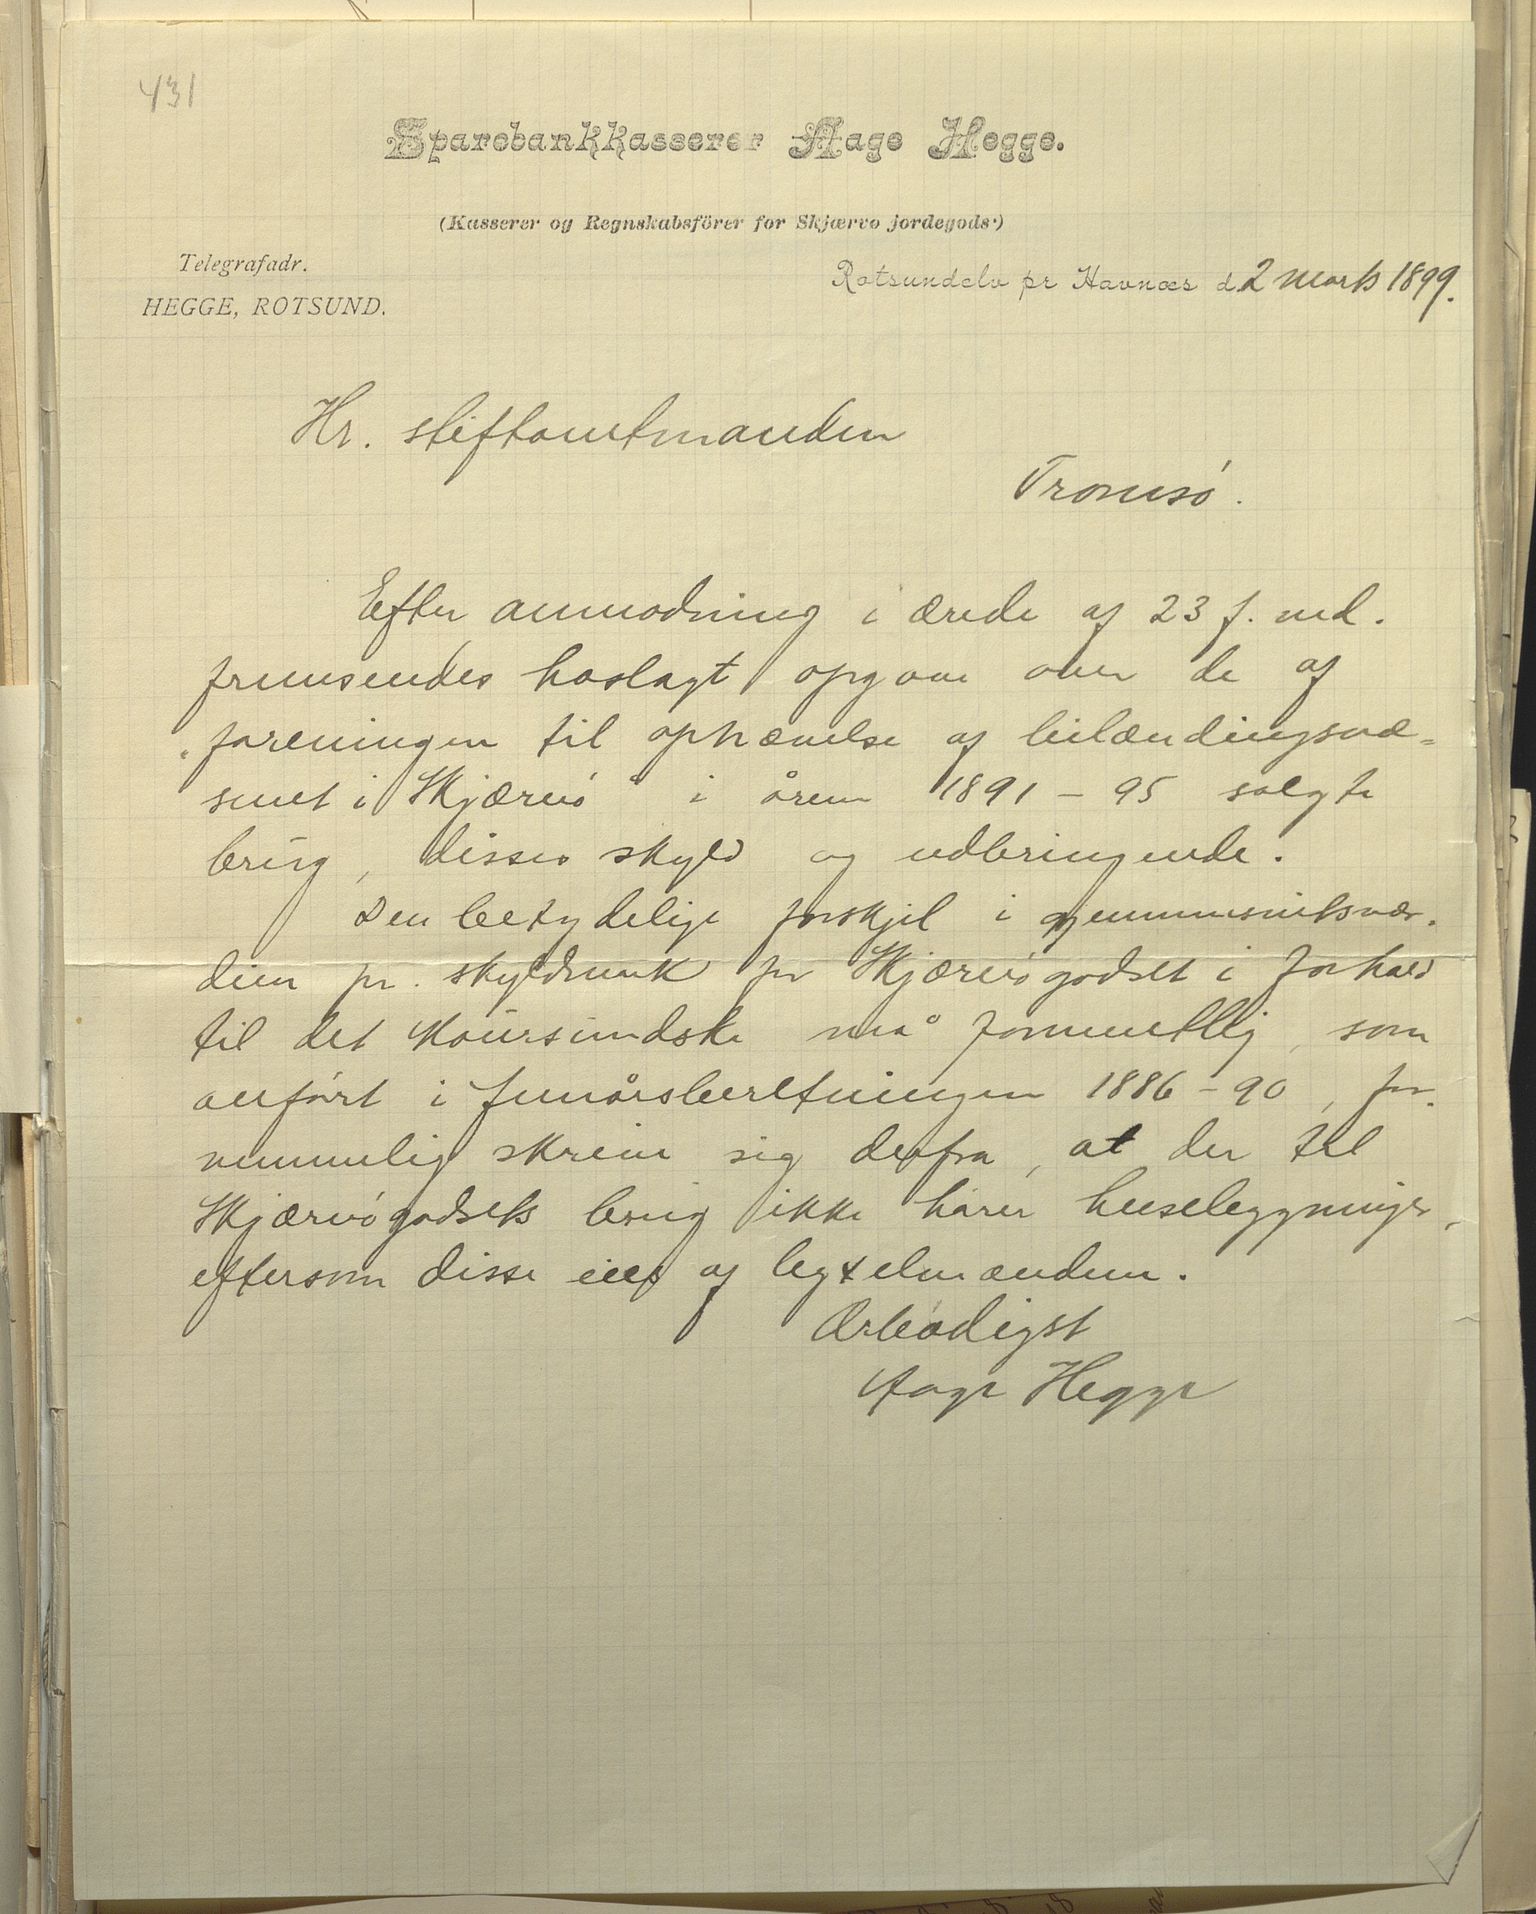 431
Sparebankkasserer Aage Hegge.
(Kasserer og Regnskabsförer for Skjærvø jordegods)
Telegrafadr.
HEGGE, ROTSUND.
Rotsundelv pr Havnæs d. 2 marts 1899.
Hr. stiftamtmanden
Tromsö.
Efter anmodning i ærede af 23 f. md.
fremsendes hoslagt opgave over de af
"foreningen til ophævelse af leilændingsvæ=
senet i Skjærvö" i årene 1891 - 95 solgte
brug, disses skyld og udbringende.
Den betydelige forskjel i gjennemsnitsvær-
dien pr. skyldmark for Skjærvögodset i forhold
til det Maursundske må formentlig, som
anfört i femårsberetningen 1886 - 90, for-
nemmelig skrive sig derfra, at der til
Skjærvögodsets brug ikke hörer husebygninger,
eftersom disse eies af bygselmændene.
Ærbödigst
Aage Hegge